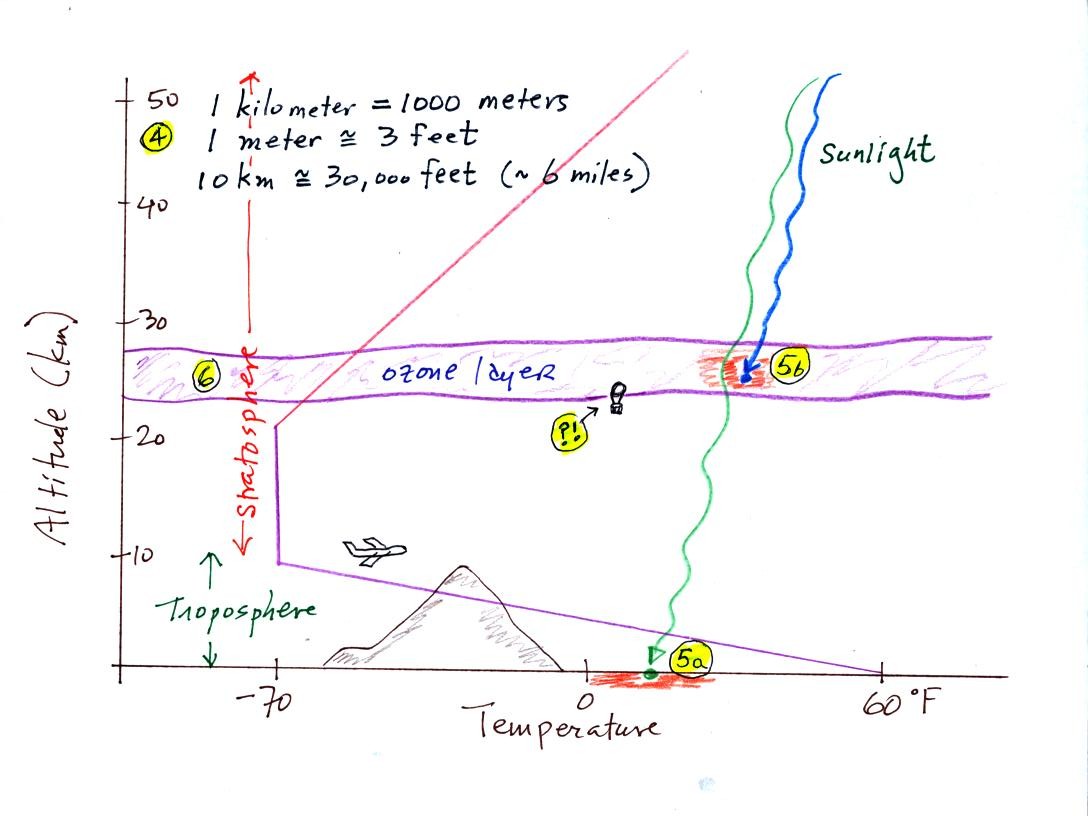 50
1 kilometer = 1000 meters
4
1 meter ≅ 3 feet
10 km ≅ 30,000 feet (~ 6 miles)
Sunlight
40
30
Altitude (km)
6
ozone layer
5b
Stratosphere
?!
20
10
Troposphere
5a
-70
0
60°F
Temperature